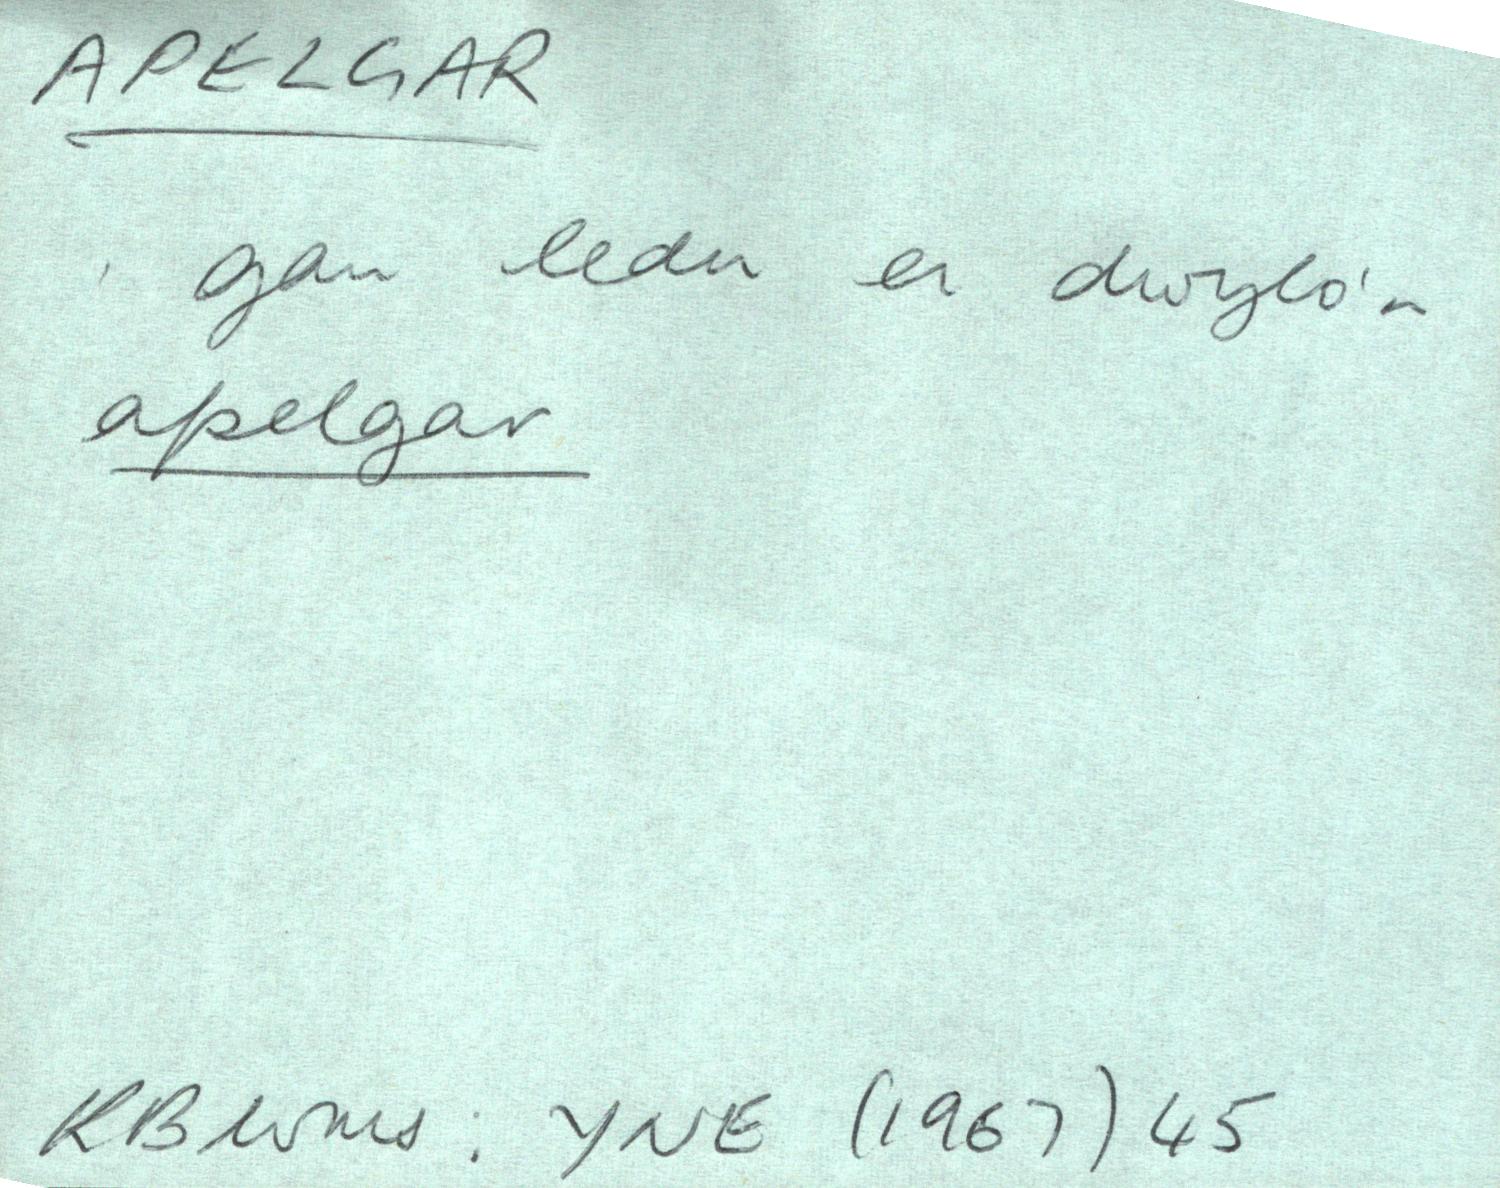 APELGAR
gan ledu ei dwylo'n
apelgar
RB Wms: YNE (1967) 45